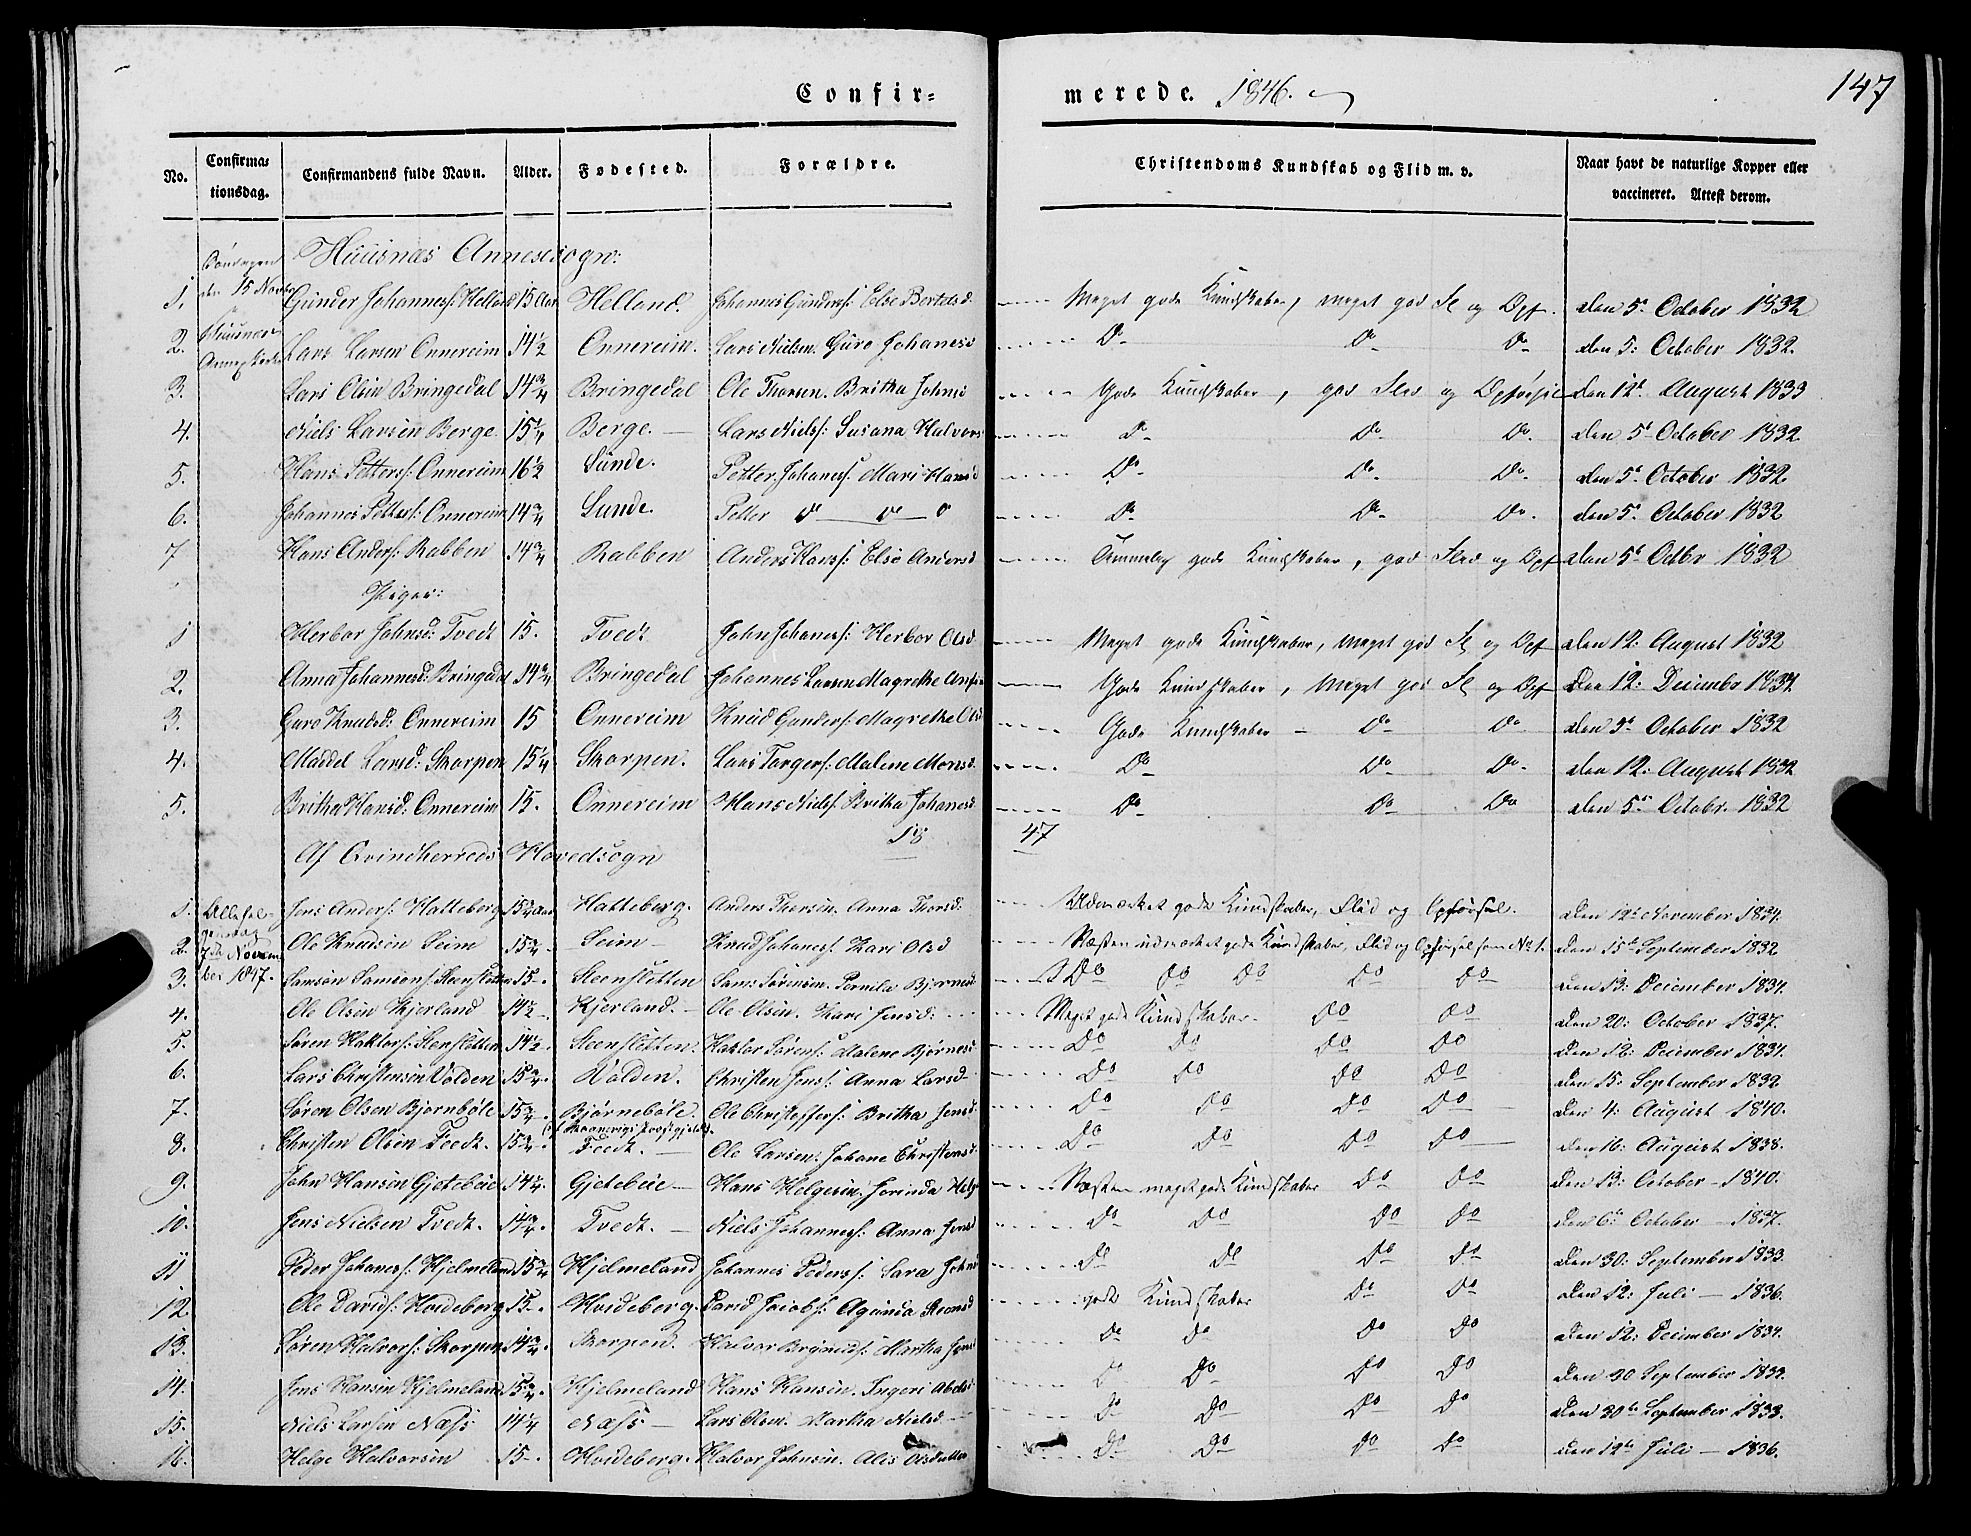 147
Confir-
merede. 1846.
No. Confirmationsdag. Confirmandens fulde Navn. Alder. Fødested. Forældre. Christendoms Kundskab og Flid m. v. Naar havt de naturlige Kopper eller vaccineret. Attest derom.
Huusnæs Annexsogn:
1. den 15 Gunder Johanness: Helland 15 Aar Helland. Johannes Gunders: Else Bertelsd. Meget gode Kundskaber, meget god Fl og Opf. den 5. October 1832
2. Lars Larsen Onnereim 14½ Onnereim. Lars Nielsen. Guro Johanesd Do Do Do den 5: October 1832.
3. Lars Olsen Bringedal 14¾ Bringedal Ole Thorsen. Britha Johnsd Gode Kundskaber, god Flid og Opførsel den 12t August 1833
4. Niels Larsen Berge. 15¼ Berge. Lars Niels: Susana Halvors Do Do Do. den 5t October 1832.
5. Hans Petters: Onnereim 16½ Sunde. Petter Johanes: Mari Hansd Do Do Do. den 5t October 1832.
6. Johannes Petters: Onnereim 14¾ Sunde. Petter Do Do Do. den 5t October 1832
7 Hans Anders: Rabben 14¾ Rabben Anders Hans: Else Andersd Temmelig gode Kundskaber, god Flid og Opf den 5t Octbr 1832
Piger:
1 Herbor Johnsd: Tvedt 15. Tvedt John Johanes: Herbor Olsd. Meget gode Kundskaber, meget god Fl og Opf den 12: August 1832
2. Anna Johannesd: Bringedal 14¾ Bringedal Johannes Larsen Magrethe Gode Kundskaber, Meget god Fl og Opf Den 12: Decembr 1834
3. Guro Knudsd: Onnereim 15 Onnereim Knud Gunders: Magrethe Olsd Gode Kundskaber - Do Do den 5t October 1832
4. Maddel Larsd: Skorpen 15¼ Skorpen. Lars Torgers: Malene Monsd. Do Do Do. den 12: August 1832
5. Britha Hansd: Onnereim 15. Onnereim Hans Niels: Britha Johanesd Do Do Do den 5te Octobr. 1832
18 47
Af Qvindherreds Hovedsogn
1. Allehel- Jens Anders: Hatteberg 15¾ Aar Hatteberg. Anders Thorsen. Anna Thorsd: Udmærket gode Kundskaber, Flid og Opførsel. Den 12te November 1834.
gensdag
2. 7de Novem Ole Knudsen Seim 15¾ Seim Knud Johanes: Kari Olsd Næsten udmærket gode Kundskaber, Flid og Opførsel som No 1. Den 15te September 1832
3. ber 1847. Samson Samsons: Steensletten 15. Steensletten Sams: Sørensen. Pernila Bjørnesd Do Do Do Do Do Den 13: December 1834.
4. Ole Olsen Kjerland 14½ Kjerland. Ole Olsen. Kari Jensd. Meget gode Kundskaber. Do Do Den 20: October 1837.
5. Søren Haktors: Steensletten 14½ Steensletten. Haktor Sørens: Malene Bjørnesd Do Do Do Do Den 12: December 1834.
6. Lars Christensen Valden 15¾. Valden. Christen Jens: Anna Larsd Do Do Do Do Den 15: September 1832
7. Søren Olsen Bjørnbøle 15¾. Bjørnebøle. Ole Christoffers: Britha Jensd. Do Do Do Do Den 4: August 1840.
8. Christen Olsen Feedt. 15¾. Feedt. Ole Larsen. Johane Christensd. Do Do Do Do Den 16: August 1838.
9. John Hansen Gjetebøe 14¼. Gjetebøe Hans Helgesen. Helg Næsten meget gode Kundskaber Do Do Den 13: October 1840.
10. Jens Nielsen Tvedt. 14¾. Tvedt. Niels Johannes: Anna Jensd Do Do Do Do Den 6te October 1837.
11 Peder Johanes: Hjelmeland 15¾ Hjelmeland Johannes Peders: Sara Do Do Do Do Den 30: September 1833.
12. Ole Davids: Hvideberg 15. Hvideberg. David Jacobs: Agunda gode Kundskaber Do Do Den 12: Juli 1836.
13. Søren Halvors: Skorpen 14¾. Skorpen. Halvor Martha Do Do Do Do Den 12: December 1834.
14. Jens Hansen Hjelmeland 15¾. Hjelmeland Hans Hansen. Ingeri Do Do Do Do Den 20 September 1832.
15. Niels Larsen Næss 14¼ Næss Lars Olsen. Martha Nielsd Do Do Do Do Den 30te September 1833.
16. Helge Halvorsen 15. Hvideberg. Halvor Johnsen. Alis Olsdatter Do Do Do Do Den 12te Juli 1836.